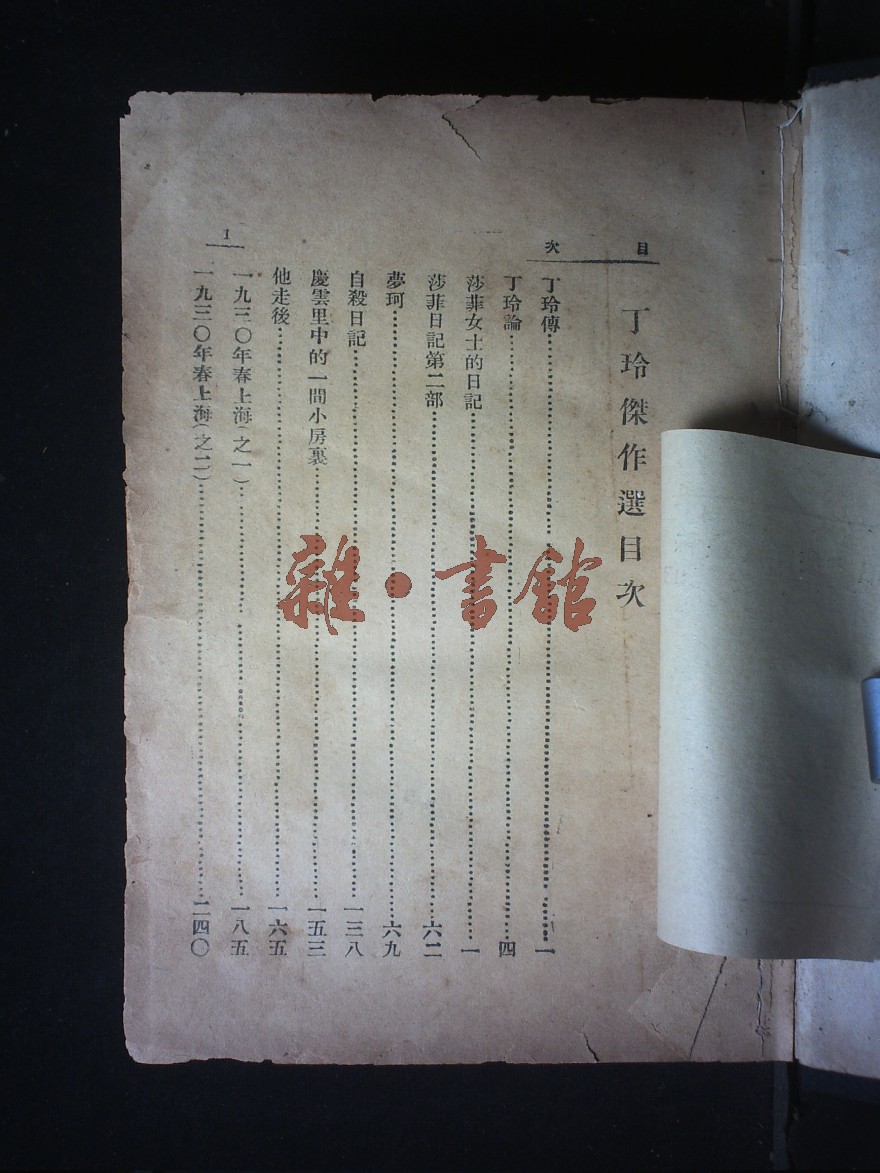 目次
丁玲傑作選目次
丁玲傳……一
丁玲論……四
莎菲女士的日記……一
莎菲日記第二部……六二
夢珂……六九
自殺日記……一三八
慶雲里中的一間小房裏……一五三
他走後……一六五
一九三〇年春上海(之一)……一八五
一九三〇年春上海(之二)……二四〇
1
雜·書館